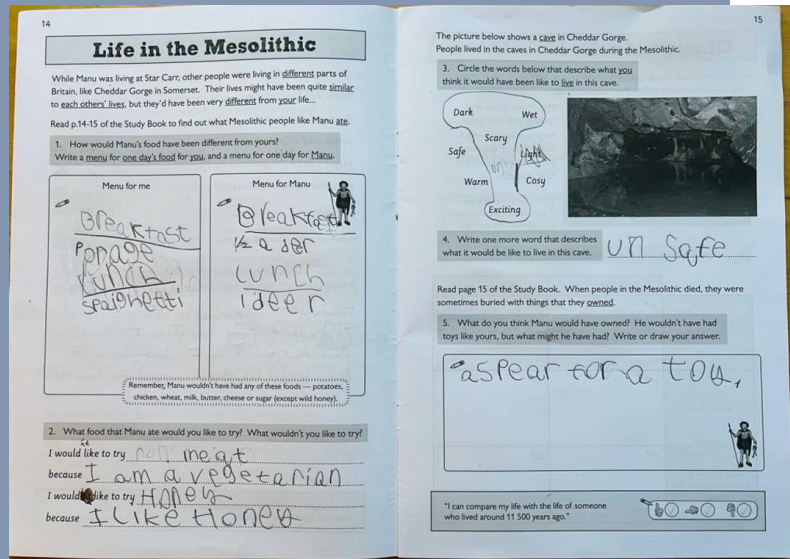 14
Life in the Mesolithic
While Manu was living at Star Carr, other people were living in different parts of
Britain, like Cheddar Gorge in Somerset. Their lives might have been quite similar
to each others' lives, but they'd have been very different from your life...
Read p.14-15 of the Study Book to find out what Mesolithic people like Manu ate.
1. How would Manu's food have been different from yours?
Write a menu for one day's food for you, and a menu for one day for Manu.
Menu for me
Breakfast
Porage
Lunch
Spaighetti
Menu for Manu
Breakfast
½ a deer
Lunch
1 deer
Remember, Manu wouldn't have had any of these foods — potatoes,
chicken, wheat, milk, butter, cheese or sugar (except wild honey).
2. What food that Manu ate would you like to try? What wouldn't you like to try?
I would like to try meat
because I am a vegetarian
I would like to try Honey
because I Like Honey
15
The picture below shows a cave in Cheddar Gorge.
People lived in the caves in Cheddar Gorge during the Mesolithic.
3. Circle the words below that describe what you
think it would have been like to live in this cave.
Dark
Wet
Scary
Safe
Light
Warm
Cosy
Exciting
4. Write one more word that describes
what it would be like to live in this cave.
un safe
Read page 15 of the Study Book. When people in the Mesolithic died, they were
sometimes buried with things that they owned.
5. What do you think Manu would have owned? He wouldn't have had
toys like yours, but what might he have had? Write or draw your answer.
a spear for a toy,
"I can compare my life with the life of someone
who lived around 11 500 years ago."